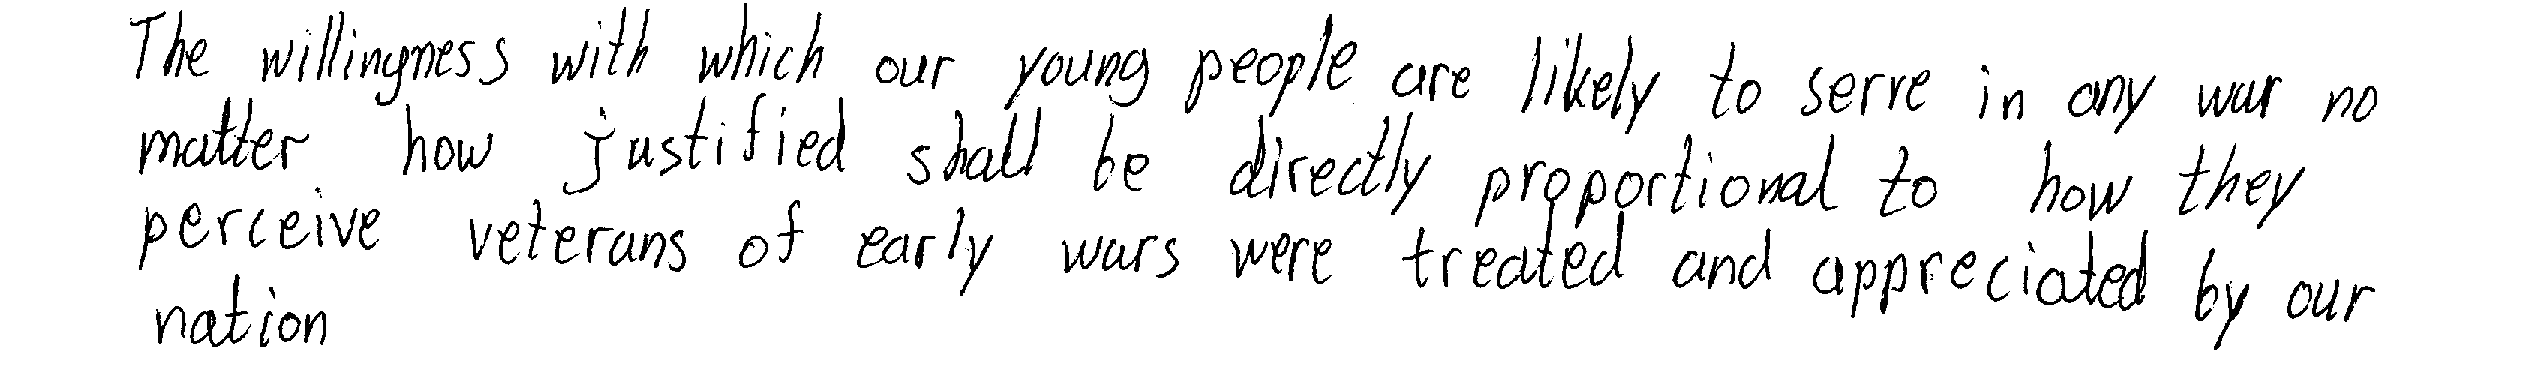 The willingness with which our young people are likely to serve in any war no
matter how justified shall be directly proportional to how they
perceive veterans of early wars were treated and appreciated by our
nation